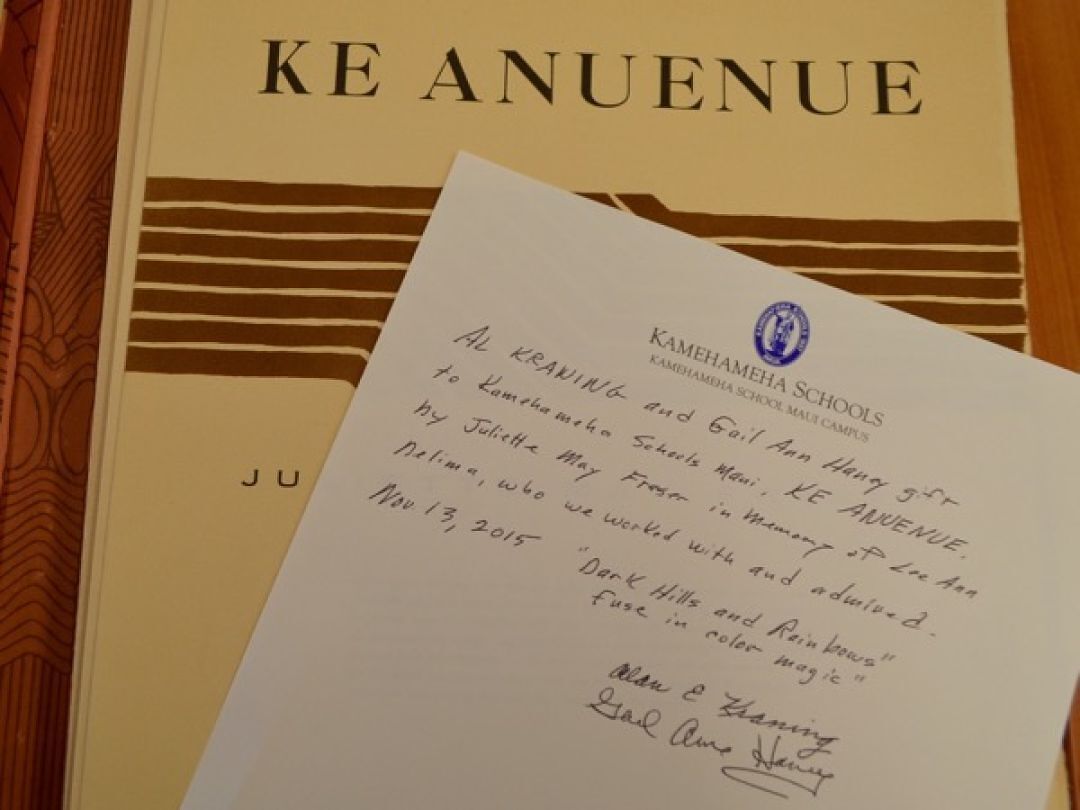 KE ANUENUE
JU
KAMEHAMEHA SCHOOLS
KAMEHAMEHA SCHOOL MAUI CAMPUS
AL KRANING and Gail Ann Haney gift
to Kamehameha Schools Maui, KE ANUENUE,
by Juliette May Fraser in memory of Lee Ann
Delima, who we worked with and admired.
Nov 13, 2015
"Dark Hills and Rainbows"
fuse in color magic"
Alan E Kraning
Gail Ann Haney